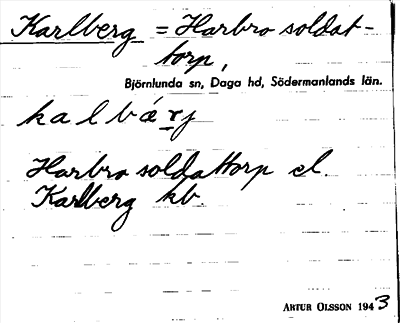 Karlberg = Harbro soldat-
torp,
Björnlunda sn, Daga hd, Södermanlands län.
kalbárj
Harbro soldattorp el.
Karlberg kb.
ARTUR OLSSON 1943